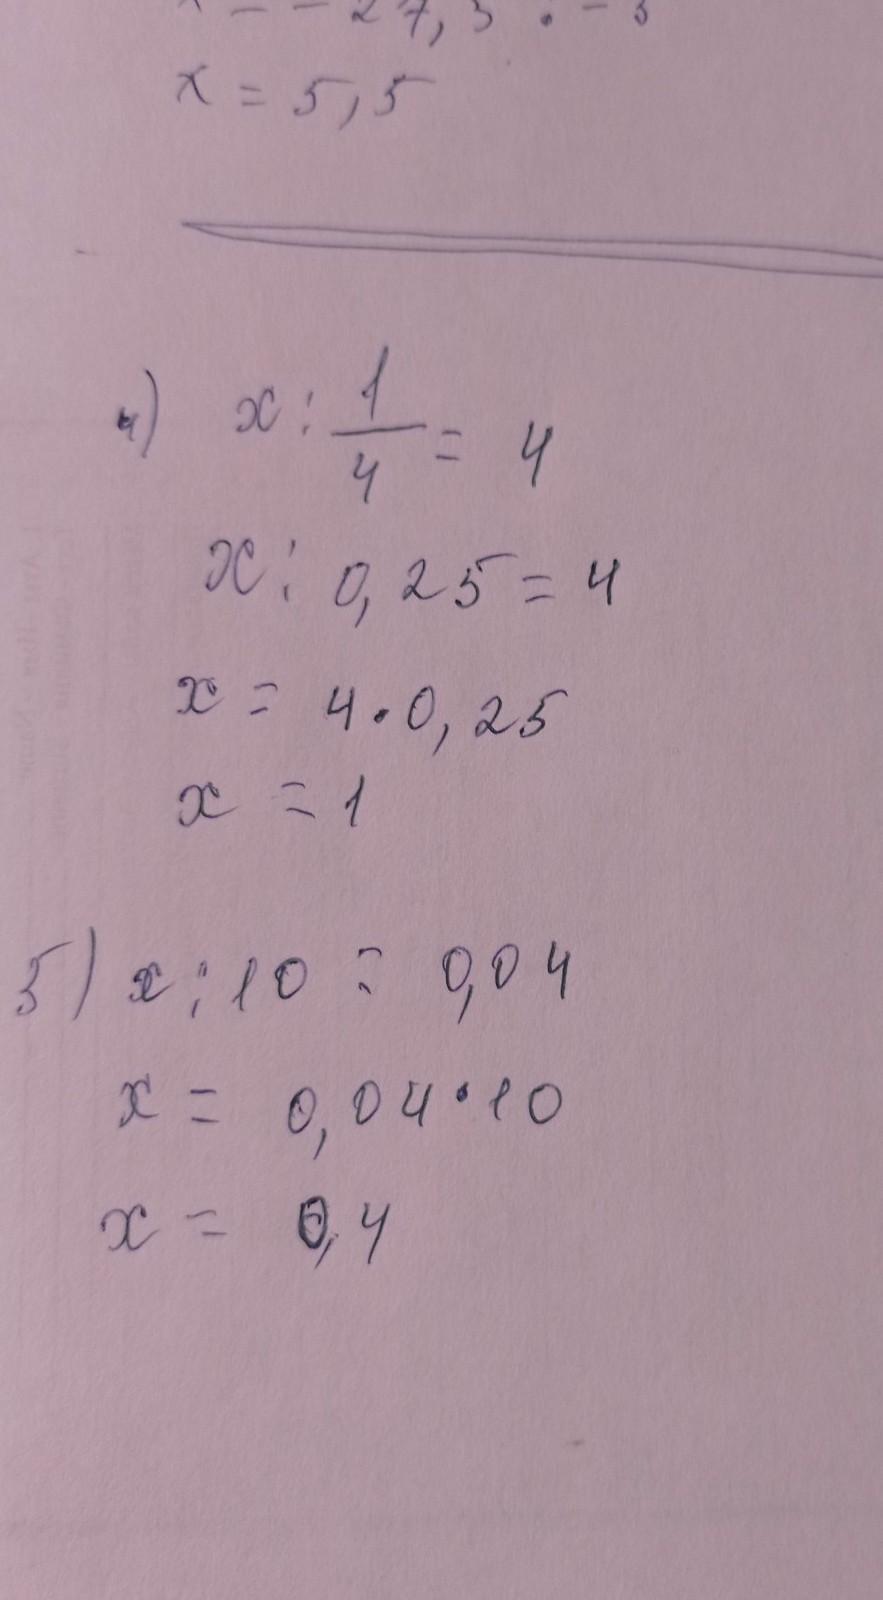 x = - 27,5 : - 5
x = 5,5
4) x : 1/4 = 4
x : 0,25 = 4
x = 4 · 0,25
x = 1
5) x : 10 = 0,04
x = 0,04 · 10
x = 0,4